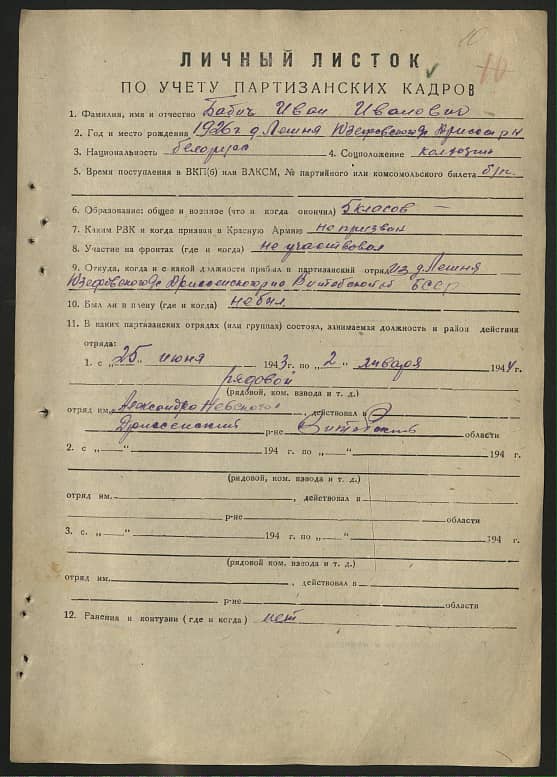 10
10
ЛИЧНЫЙ ЛИСТОК
ПО УЧЕТУ ПАРТИЗАНСКИХ КАДРОВ
1. Фамилия, имя и отчество Бабич Иван Иванович
2. Год и место рождения 1926г д. Лешня Юзефовского Дриссен. р-н
3. Национальность белорус 4. Соцположение колхозник
5. Время поступления в ВКП(б) или ВЛКСМ, № партийного или комсомольского билета б/п.
6. Образование: общее и военное (что и когда окончил) 5 класов —
7. Каким РВК и когда призван в Красную Армию не призван
8. Участие на фронтах (где и когда) не участвовал
9. Откуда, когда и с какой должности прибыл в партизанский отряд из д. Лешня
Юзефовского Дриссенского р-на Витебской БССР
10. Был ли в плену (где и когда) не был
11. В каких партизанских отрядах (или группах) состоял, занимаемая должность и район действия
отряда:
1. с „25" июня 1943 г. по „2" января 1944 г.
рядовой
(рядовой, ком. взвода и т. д.)
отряд им. Александра Невского, действовал в
Дриссенский р-не Витебской области
2. с „—" 194 г. по „—" 194 г.
(рядовой, ком. взвода и т. д.)
отряд им. , действовал в
р-не области
3. с. „—" 194 г. по „—" 194 г.
(рядовой, ком. взвода и т. д.)
отряд им. , действовал в
р-не области
12. Ранения и контузии (где и когда) нет